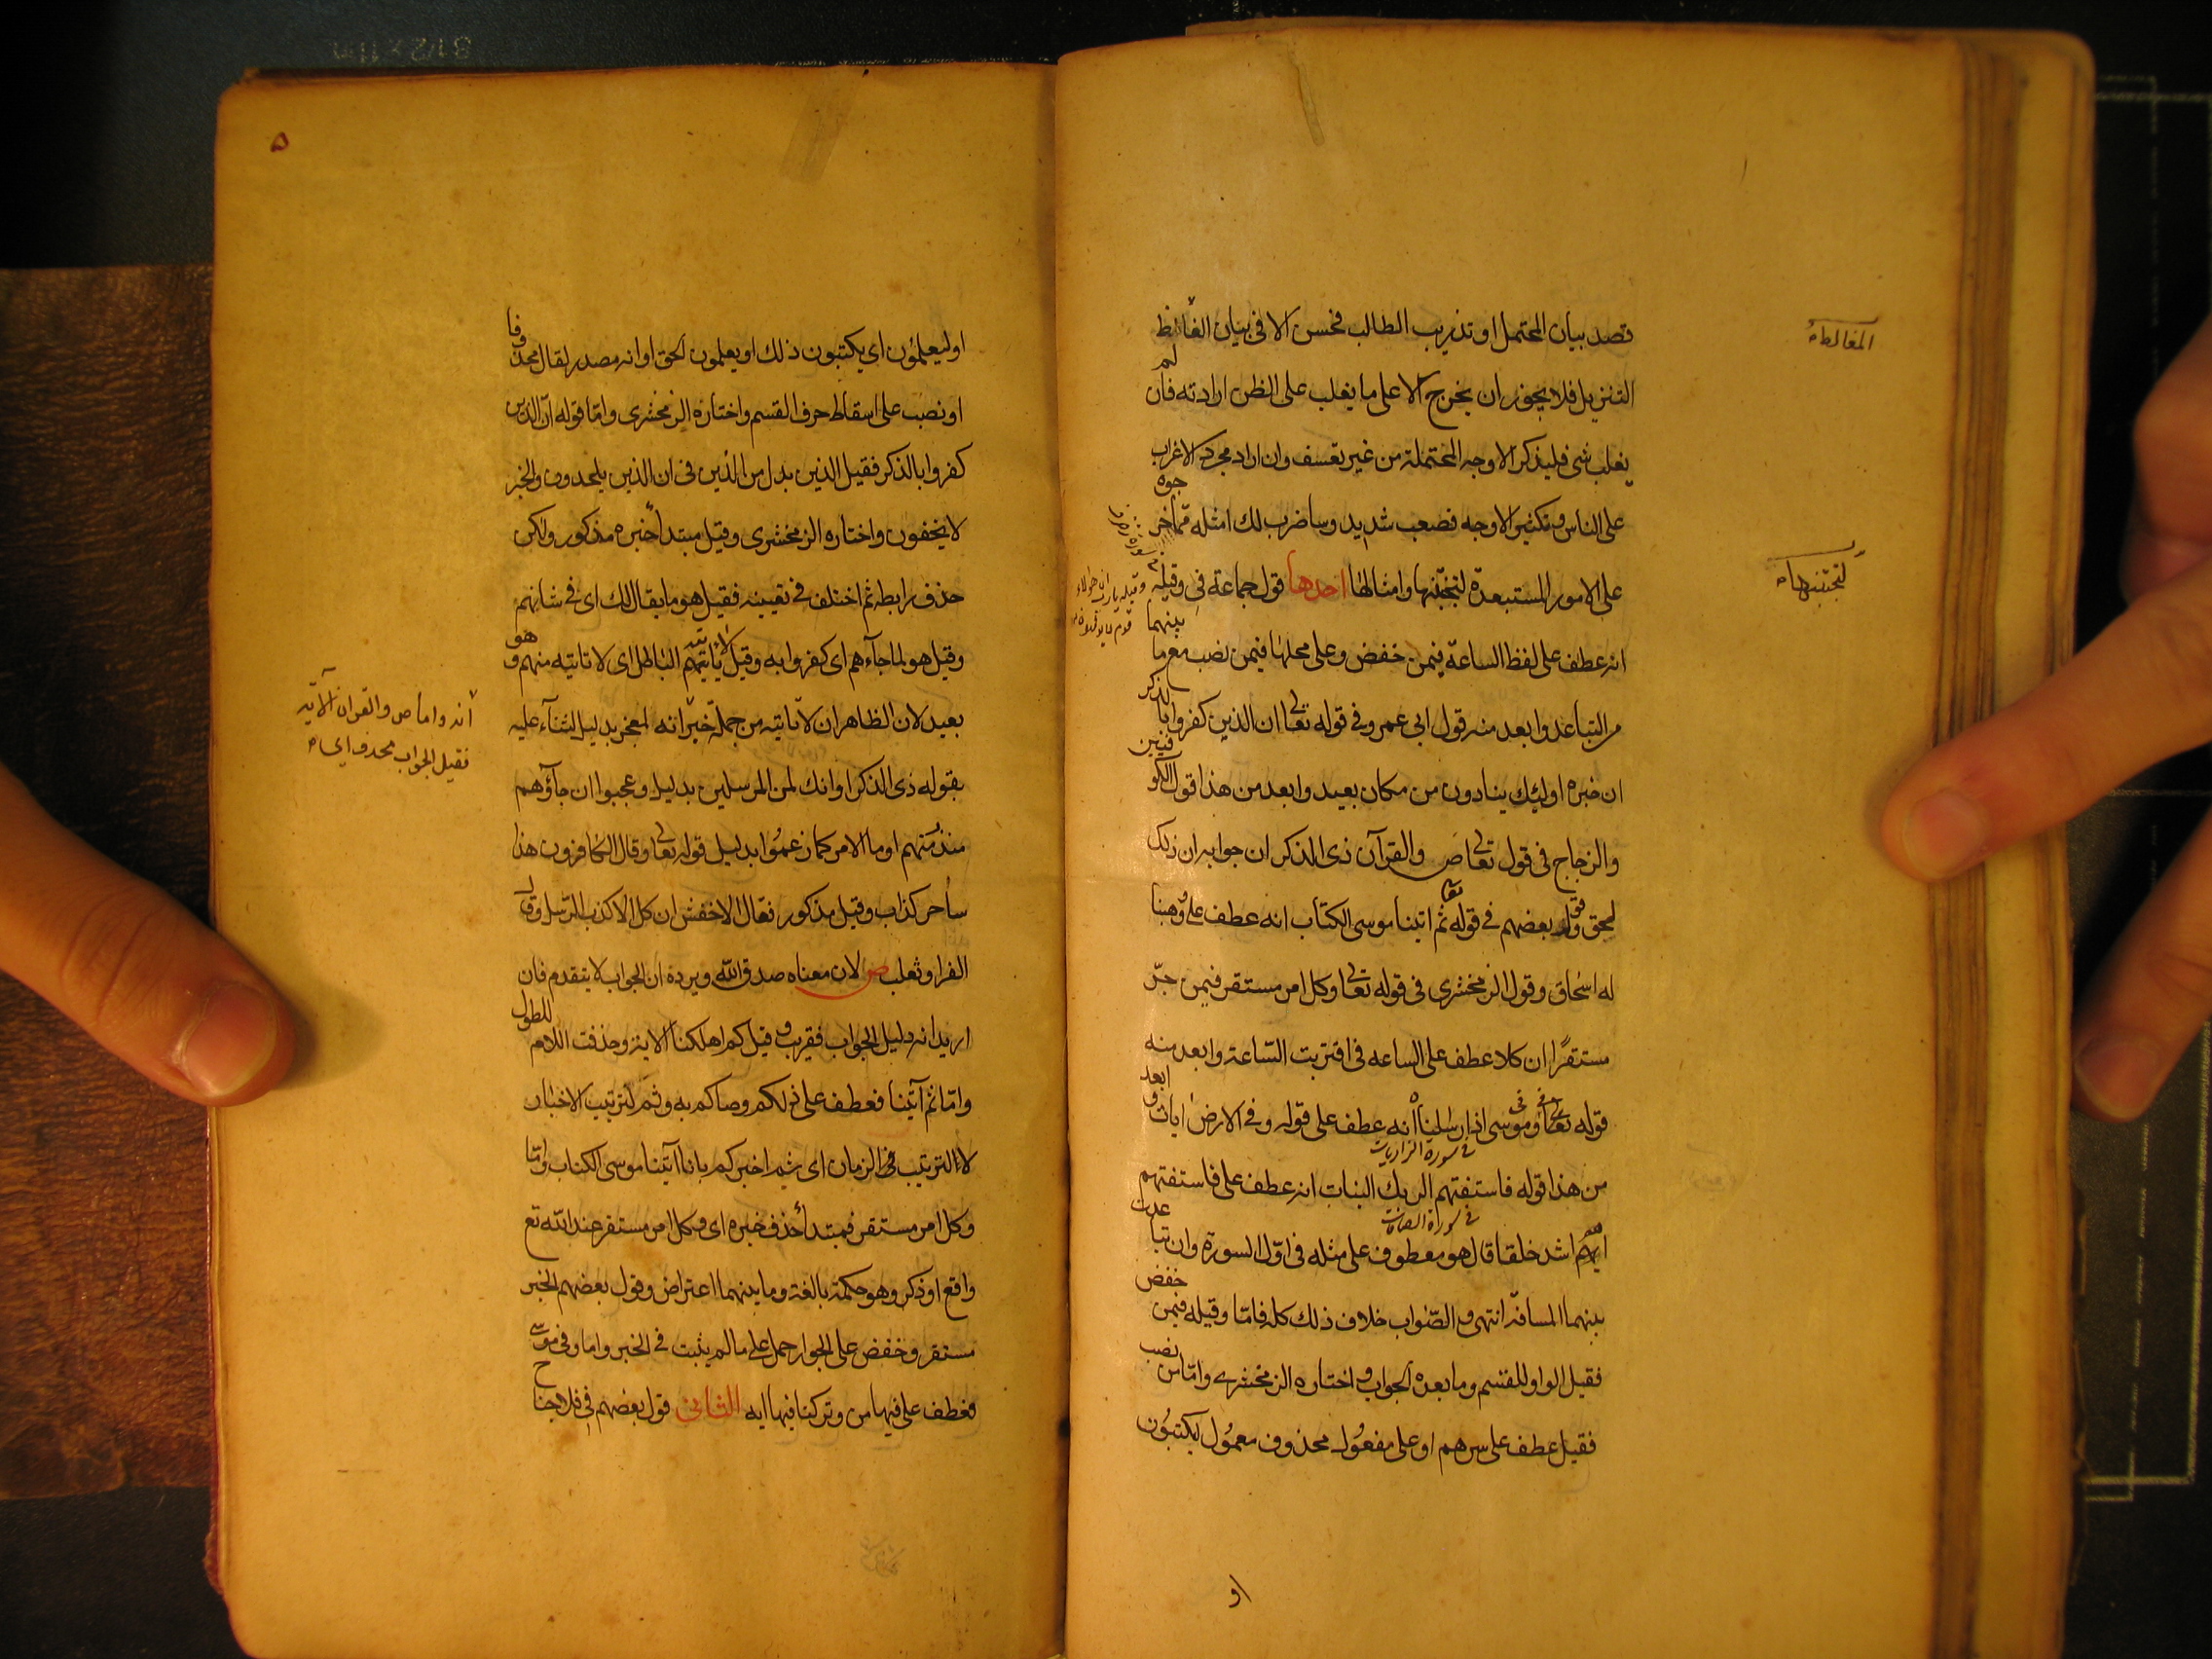 قصد بيان المحتمل او تدريب الطالب فحسن الا فى بيان الفاظ
التنزيل فلا يجوز ان يخرج الا على ما يغلب على الظن ارادته فان لم
يغلب شى فليذكر الاوجه المحتملة من غير تعسف وان اراد مجرد الاغراب
على الناس وتكثير الاوجه فصعب شديد وساضرب لك امثله مما خرجوه
على الامور المستبعدة لتجتنبها وامثالها احدها قول جماعة فى وقيله
انه عطف على لفظ الساعة فيمن خفض وعلى محلها فيمن نصب مع ما بينهما
من التباعد وابعد منه قول ابى عمرو فى قوله تعالى ان الذين كفروا بالذكر
ان خبره اولئك ينادون من مكان بعيد وابعد من هذا قول الكوفيين
والزجاج فى قول تعالى ص والقرآن ذى الذكر ان جوابه ان ذلك
لحق وقول بعضهم فى قوله تعا ثم اتينا موسى الكتاب انه عطف على وهبنا
له اسحاق وقول الزمخشرى فى قوله تعالى وكل امر مستقر فيمن جرّ
مستقرًا ان كلا عطف على الساعه فى اقتربت الساعة وابعد منه
قوله تعالى وفى موسى اذ ارسلناه انه عطف على قوله وفى الارض ايات وابعد
فى سورة الذاريات
من هذا قوله فاستفتهم الربك البنات انه عطف على فاستفتهم
فى سورة الصافات
اهم اشد خلقا قال هو معطوف على مثله فى اوّل السورة وان تباعدت
بينهما المسافة انتهى والصّواب خلاف ذلك كله فامّا وقيله فيمن خفض
فقيل الواو للقسم وما بعده الجواب واختاره الزمخشرى وامّا من نصب
فقيل عطف على سرهم او على مفعول محذوف معمول ليكتبون
او
المغالطه
لتجتنبها
وقيله يارب ان هؤلاء
قوم لا يؤمنون
٥
او ليعلمون اى يكتبون ذلك او يعلمون الحق او انه مصدر لقال محذوفا
او نصب على اسقاط حرف القسم واختاره الزمخشرى وامّا قوله ان الذين
كفروا بالذكر فقيل الذين بدل من الذين فى ان الذين يلحدون والخبر
لا يخفون واختاره الزمخشرى وقيل مبتدأ خبره مذكور ولكن
حذف رابطه ثم اختلف فى تعيينه فقيل هو ما يقال لك اى فى شانهم
وقيل هو لما جآءهم اى كفروا به وقيل لا يأتيه الباطل اى لا ياتيه منهم وهو
بعيد لان الظاهر ان لا ياتيه من جملة خبر انه
بقوله ذى الذكر او انك لمن المرسلين بدليل وعجبوا ان جآؤهم
منذر منهم او ما الامر كما زعموا بدليل قوله تعالى وقال الكافرون هذا
ساحر كذاب وقيل مذكور فقال الاخفش ان كل الا كذب الرسل وقال
الفرا وثعلب ص لان معناه صدق الله ويرده ان الجواب لا يتقدم فان
اريد انه دليل الجواب فقريب وقيل كم اهلكنا الاية وحذفت اللام للطول
وامّا ثم آتينا فعطف على ذلكم وصاكم به وثم لترتيب الاخبار
لا الترتيب فى الزمان اى ثم اخبركم بانا آتينا موسى الكتاب وامّا
وكل امر مستقر فمبتدأ حذف خبره اى وكل امر مستقر عند الله تع
واقع او ذكر وهو حكمة بالغة وما بينهما اعتراض وقول بعضهم الخبر
مستقر وخفض على الجوار حمل على ما لم يثبت فى الخبر واما وفى موسى
فعطف على فيها من وتركنا فيها ايه الثانى قول بعضهم فى فلا جناح
انه واما ص والقران الآيه
فقيل الجواب محذوف اى